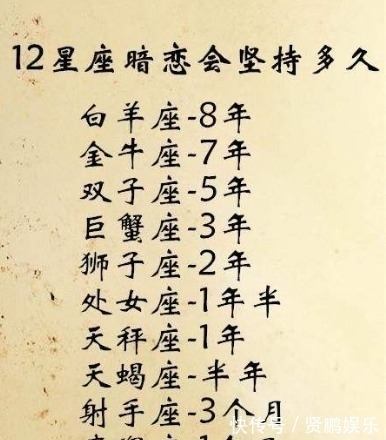 12星座暗恋会坚持多久
白羊座-8年
金牛座-7年
双子座-5年
巨蟹座-3年
狮子座-2年
处女座-1年半
天秤座-1年
天蝎座-半年
射手座-3个月
快传号／贤鹏娱乐